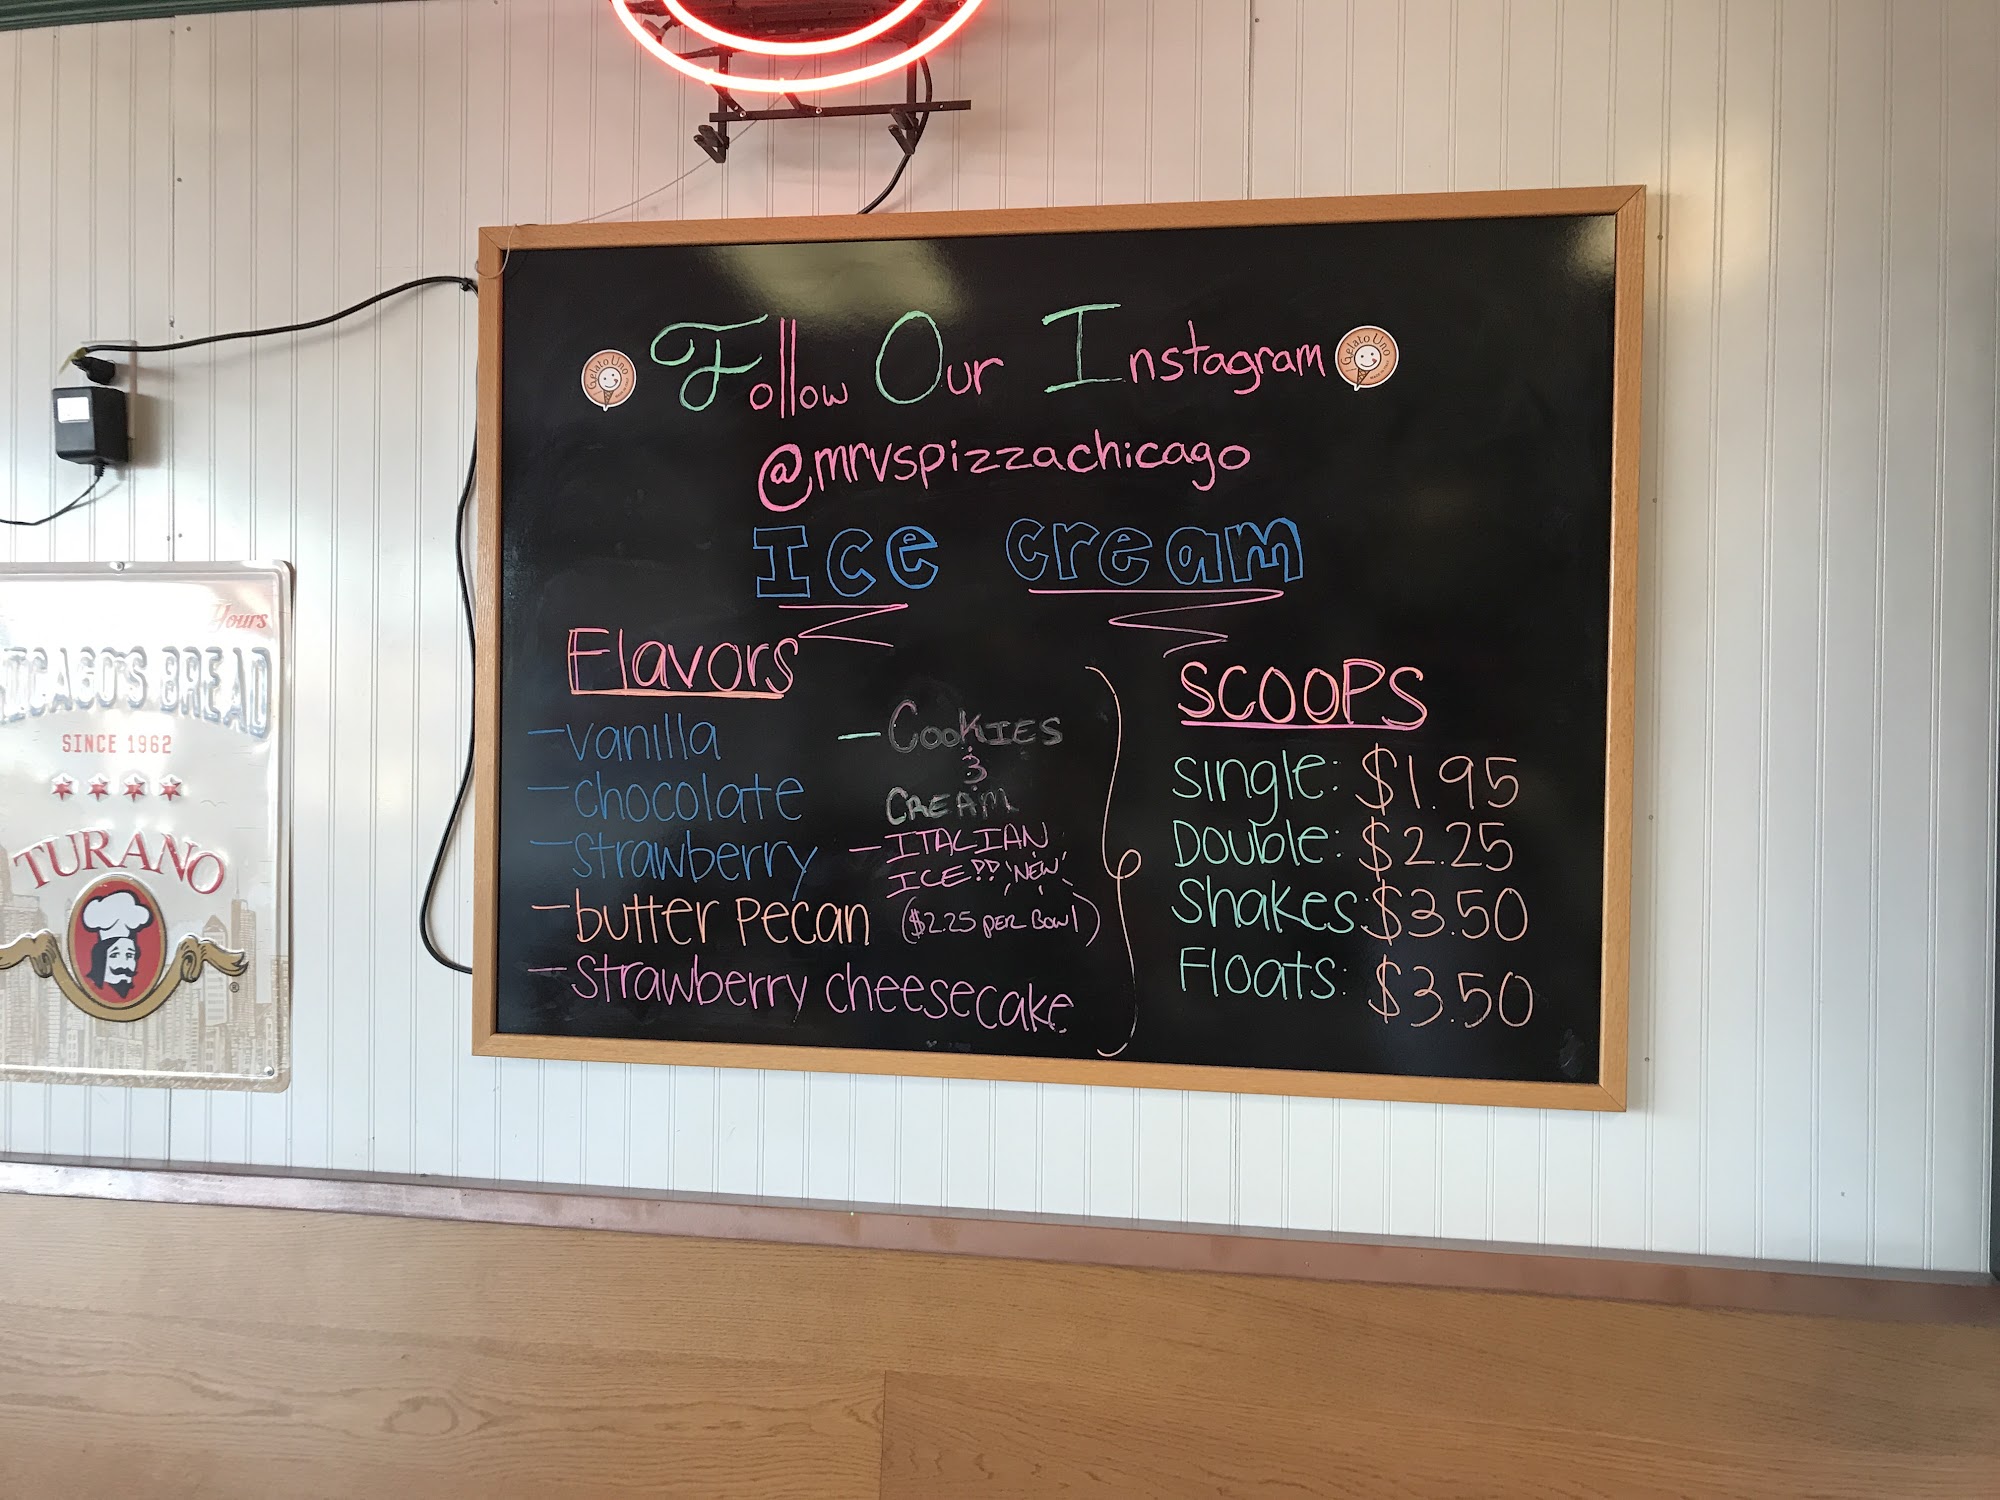 Follow Our Instagram
Gelato Uno
Gelato Uno
@mrvspizzachicago
Ice cream
Flavors
- vanilla
- chocolate
- strawberry
- butter pecan
- strawberry cheesecake
- COOKIES
&
CREAM
- ITALIAN
ICE!! NEW
($2.25 PER BOWL)
SCOOPS
single: $1.95
Double: $2.25
Shakes: $3.50
Floats: $3.50
Hours
HICAGO'S BREAD
SINCE 1962
TURANO
®